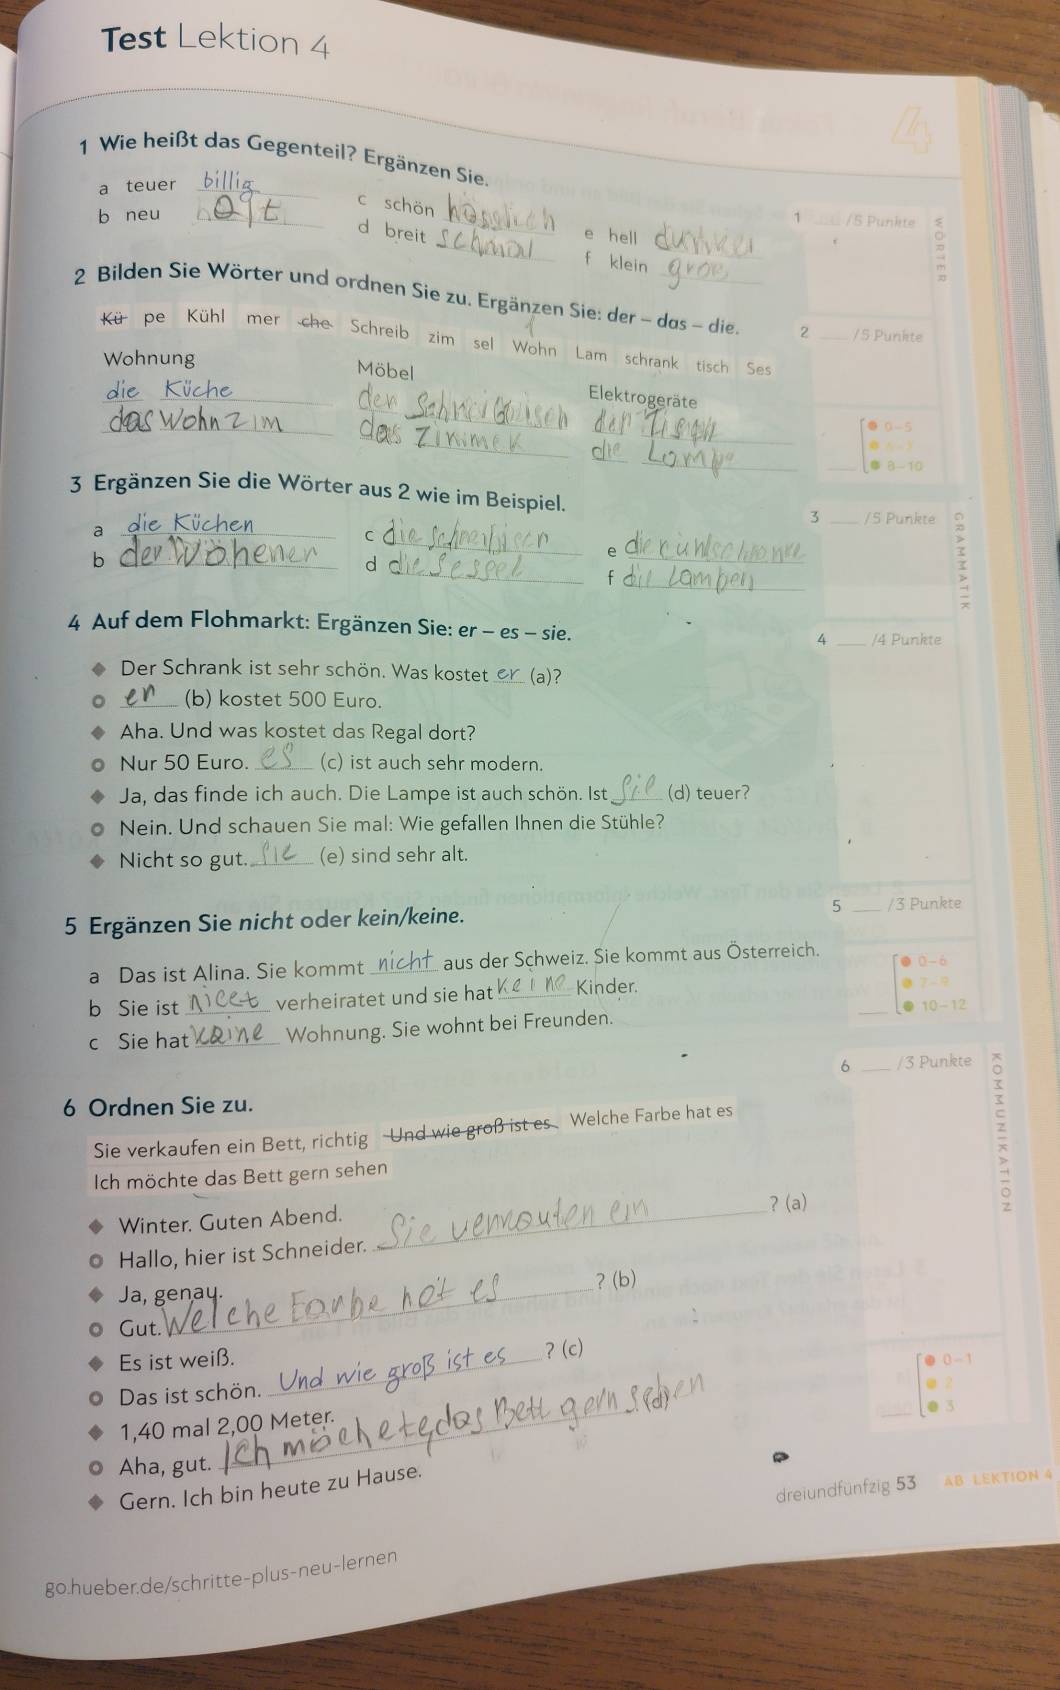 Test Lektion 4
4
1 Wie heißt das Gegenteil? Ergänzen Sie.
a teuer billig
b neu
c schön hässlich
d breit schmal
e hell dunkel
f klein
1 /5 Punkte
WÖRTER
2 Bilden Sie Wörter und ordnen Sie zu. Ergänzen Sie: der – das – die.
2 /5 Punkte
Kü pe Kühl mer che Schreib zim sel Wohn Lam schrank tisch Ses
Wohnung
die Küche
das Wohnzim
Möbel
der
das
Elektrogeräte
der
die
0–5
8–10
3 Ergänzen Sie die Wörter aus 2 wie im Beispiel.
3 /5 Punkte
a die Küchen
b der Wöhener
c die
d die Sessel
e die
f die Lampen
GRAMMATIK
4 Auf dem Flohmarkt: Ergänzen Sie: er – es – sie.
4 /4 Punkte
Der Schrank ist sehr schön. Was kostet er (a)?
er (b) kostet 500 Euro.
Aha. Und was kostet das Regal dort?
Nur 50 Euro. es (c) ist auch sehr modern.
Ja, das finde ich auch. Die Lampe ist auch schön. Ist sie (d) teuer?
Nein. Und schauen Sie mal: Wie gefallen Ihnen die Stühle?
Nicht so gut. sie (e) sind sehr alt.
5 Ergänzen Sie nicht oder kein/keine.
5 /3 Punkte
a Das ist Alina. Sie kommt nicht aus der Schweiz. Sie kommt aus Österreich.
b Sie ist nicet verheiratet und sie hat keine Kinder.
c Sie hat keine Wohnung. Sie wohnt bei Freunden.
0–6
7–9
10–12
6 Ordnen Sie zu.
6 /3 Punkte
KOMMUNIKATION
Sie verkaufen ein Bett, richtig Und wie groß ist es Welche Farbe hat es
Ich möchte das Bett gern sehen
Winter. Guten Abend.
Hallo, hier ist Schneider. Sie ein ? (a)
Ja, genau.
Gut. Welche Farbe hat es ? (b)
Es ist weiß.
Das ist schön. Und wie groß ist es ? (c)
1,40 mal 2,00 Meter.
Aha, gut. Ich möchete das Bett gern sehen (d)
Gern. Ich bin heute zu Hause.
0–1
2
3
dreiundfünfzig 53 AB LEKTION 4
go.hueber.de/schritte-plus-neu-lernen